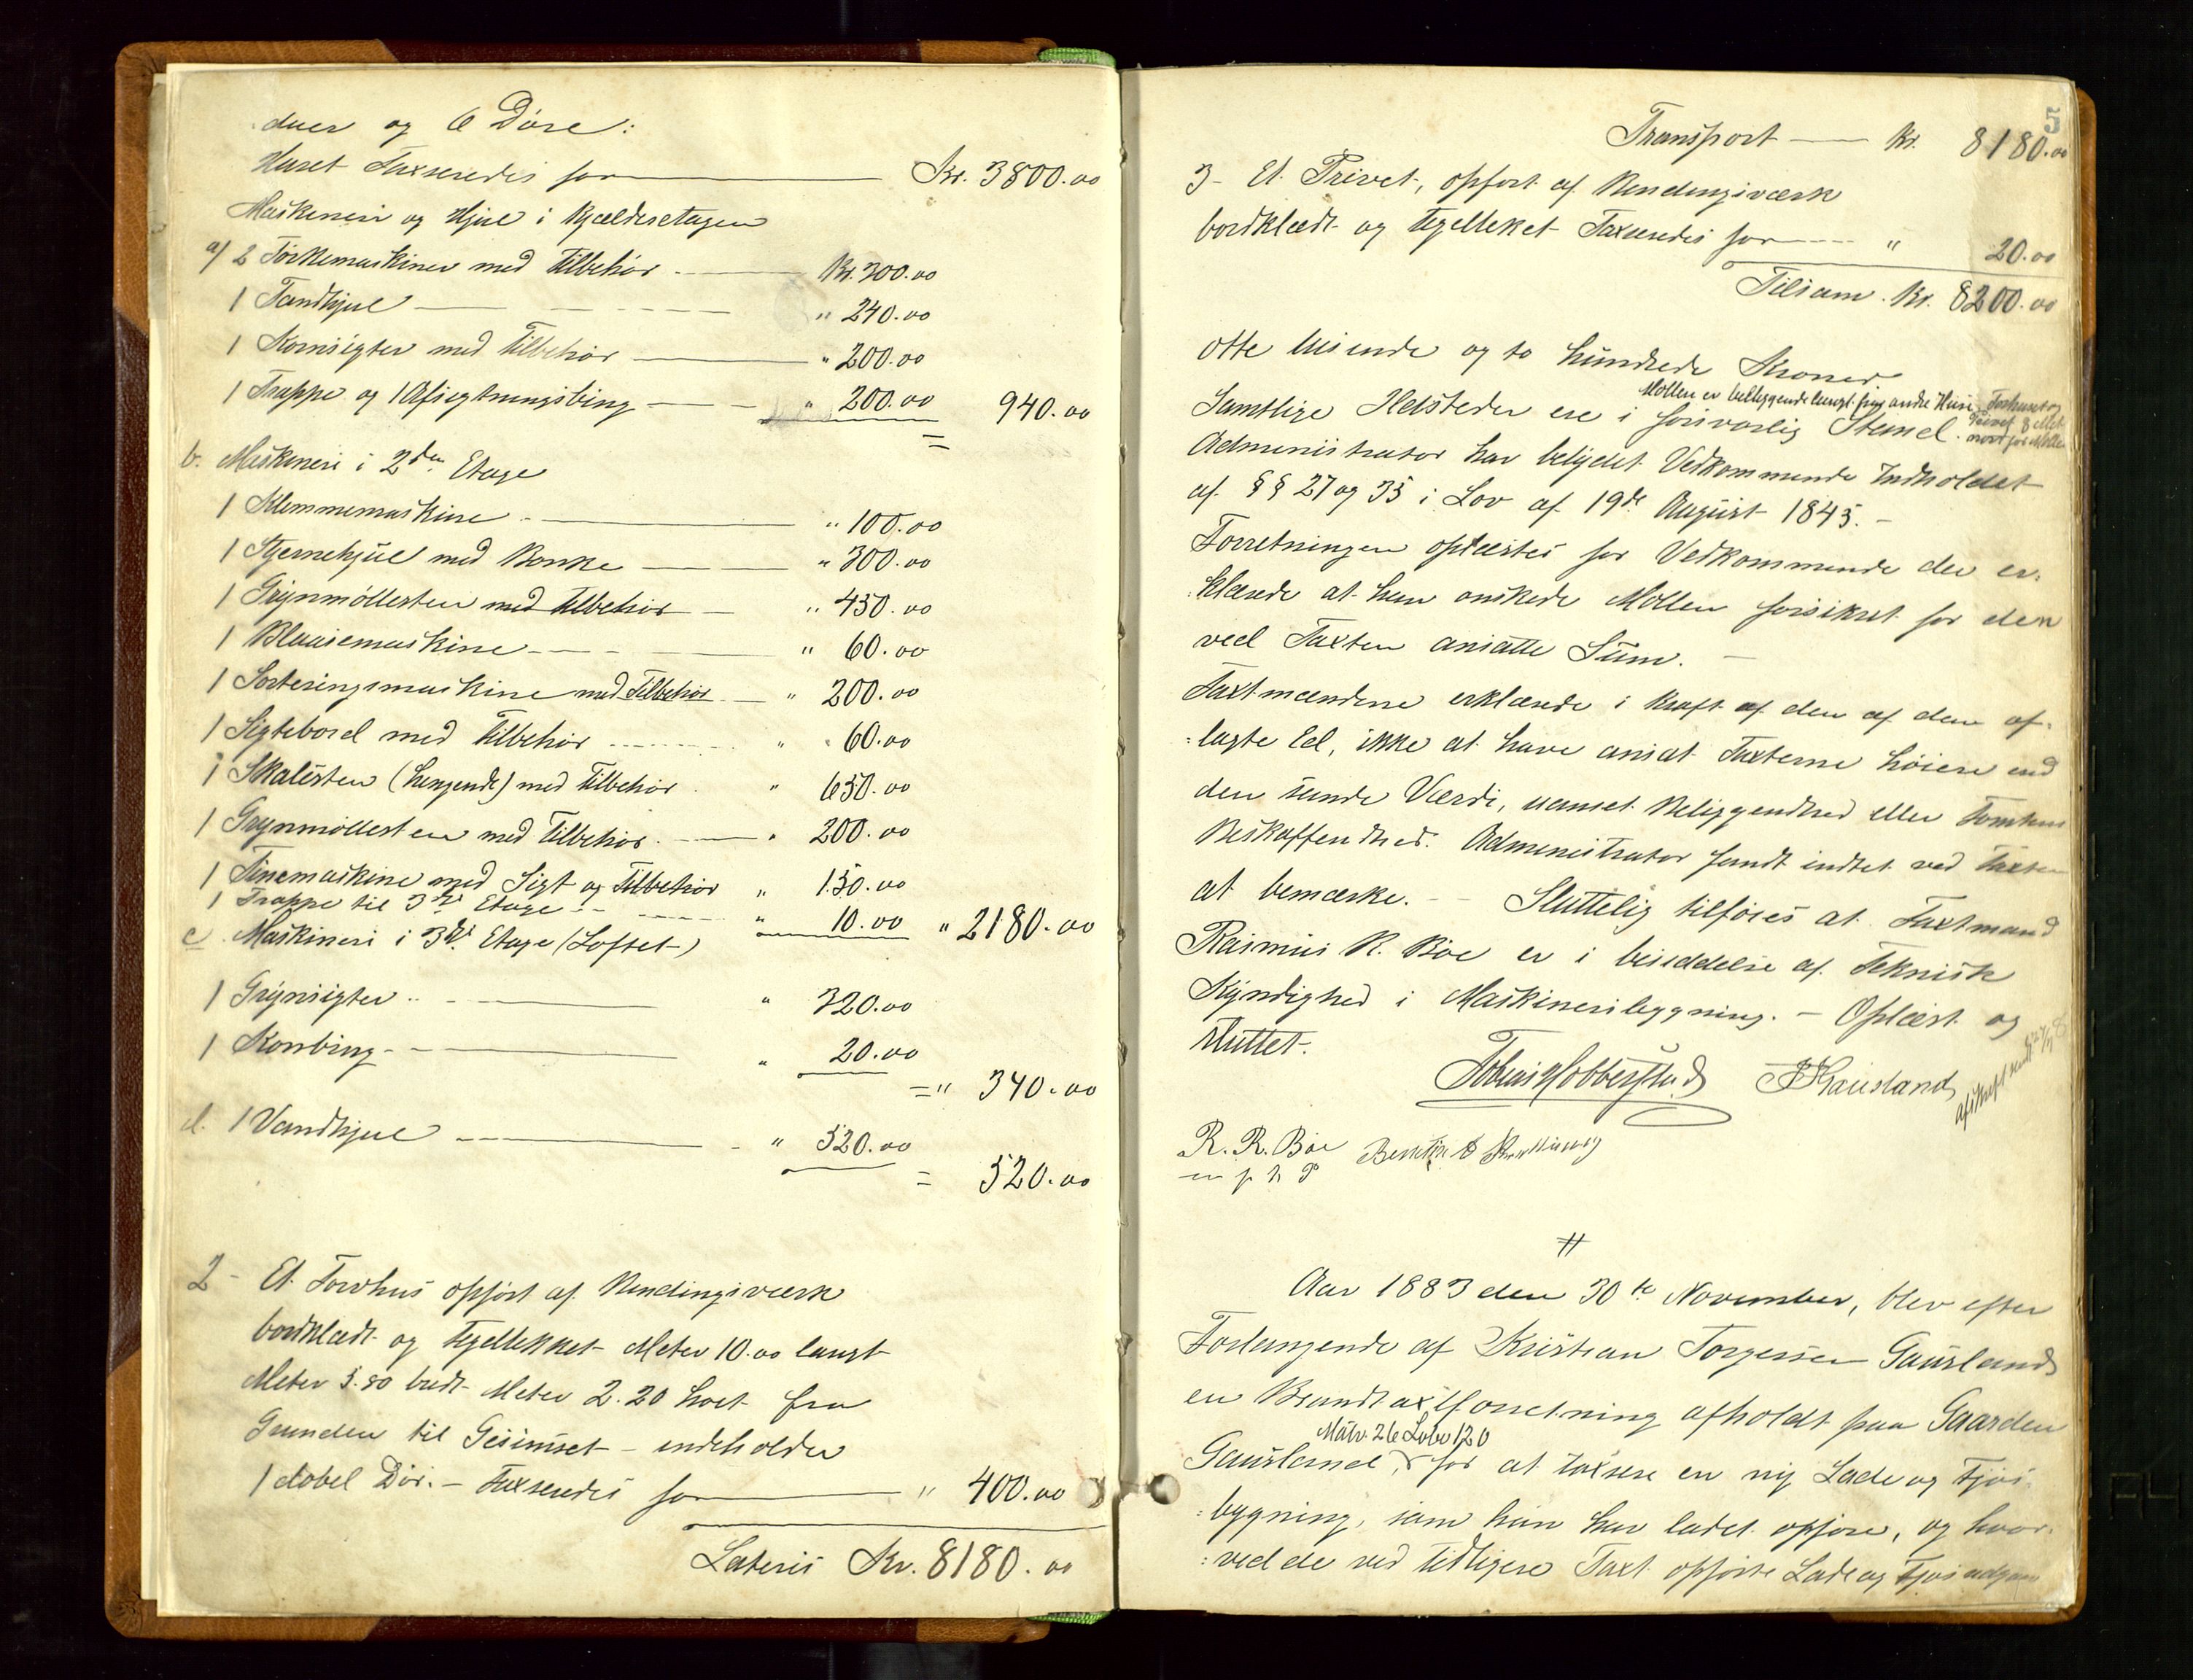 duer og 6 Döre:
Huset Taxseredes for Kr. 3800.00
Maskineri og Hjul i Kjælderetagen
a/ 2 Törkemaskiner med Tilbehör Kr. 300.00
1 Tandhjul " 240.00
1 Kornsigter med Tilbehör " 200.00
1 Trappe og 1 Afsigtningsbing " 200.00 940.00
=
b. Maskineri i 2den Etage
1 Klemmemaskine " 100.00
1 Stjernehjul med Bonke " 300.00
1 Grynmöllesten med Tilbehör " 450.00
1 Blaasemaskine " 60.00
1 Sorteringsmaskine med Tilbehör " 200.00
1 Sigtebord med Tilbehör " 60.00
1 Skalesten (hengende) med Tilbehör " 650.00
1 Grynmöllesten med Tilbehör " 200.00
1 Finemaskine med Sigt og Tilbehör " 150.00
1 Trappe til 3die Etage " 10.00 " 2180.00
c. Maskineri i 3die Etage (Loftet)
1 Grynsigter " 320.00
1 Kornbing " 20.00
= " 340.00
d. 1 Vandhjul " 520.00
= 520.00
2 - Et Torvhus opfört af Bindingsværk
bordklædt og tegltekket Meter 10.00 langt
Meter 5.80 bredt Meter 2.20 höit fra
Grunden til Gesimset - indeholder
1 dobel Dör. - Taxseredes for " 400.00
Lateris Kr. 8180.00
5
Transport Kr. 8180.00
3 - Et Privet, opfört af Bindingsværk
bordklædt og tegltekket Taxseredes for " 20.00
Tilsam. Kr. 8200.00
otte tusende og to hundrede Kroner
Möllen er beliggende langt fra andre Huse, Torvhuset og
Privet 8 Met.
nord for Möllen
Samtlige Ildsteder ere i forsvarlig Stand.
Administrator har betydet Vedkommende Indholdet
af §§ 27 og 35 i Lov af 19de August 1845. -
Forretningen oplæstes for Vedkommende der er-
:klærede at han önskede Möllen forsikret for den
ved Taxten ansatte Sum. -
Taxtmændene erklærede i Kraft af den af dem af-
:lagte Ed, ikke at have ansat Taxterne höiere end
den sande Værdi, uanset Beliggendhed eller Tomtens
Beskaffendhed. Administrator fandt indtet ved Taxten
at bemærke. - Sluttelig tilföies at Taxtmand
Rasmus R. Böe er i besiddelse af Teknisk
Kyndighed i Maskineribygning. - Oplæst og
sluttet.
Tobias Hobberstad T Gausland
afskrift sendt
R. R. Böe
m p h P
#
Aar 1883 den 30te November, blev efter
Forlangende af Kristian Torgersen Gausland
en Brandtaxtforretning afholdt paa Gaarden
Matr. 26 Löbe 120
Gausland, for at taxsere en ny Lade og Fjös-
:bygning, som han har ladet opföre, og hvor-
:ved de ved tidligere Taxt opförte Lade og Fjös udgaar